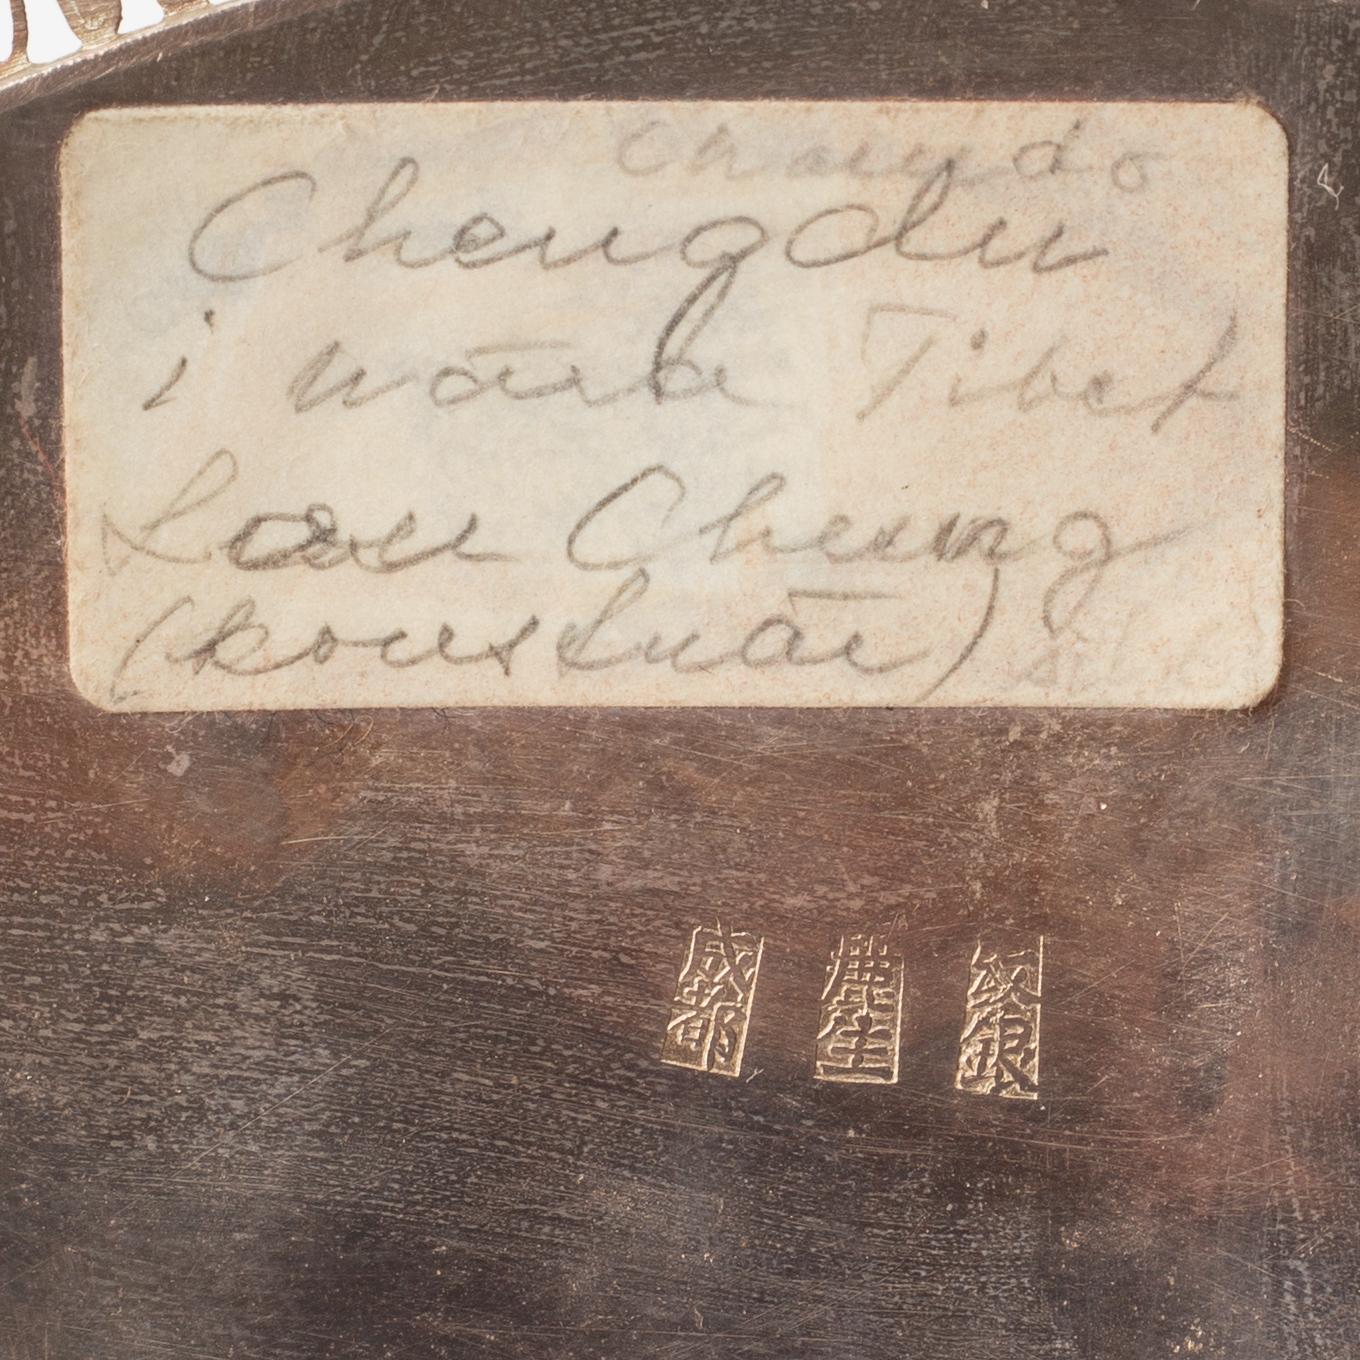 Chamdo
Chengdu
i nära Tibet
Lau Cheung
(konstnär)
成都
紋銀